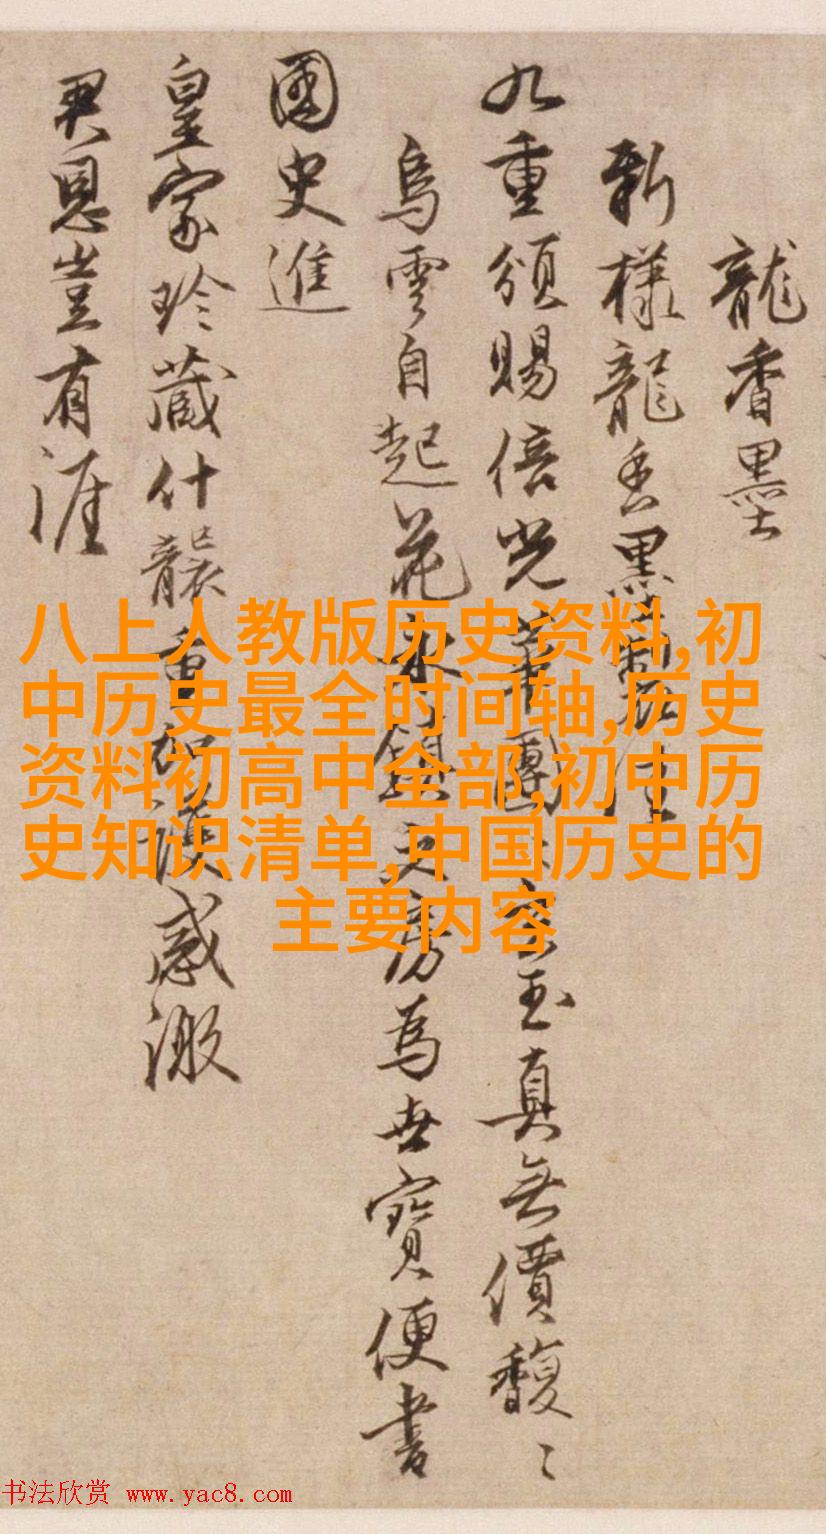 龍香墨
新樣龍香墨製
九重頒賜倍光華團玉真無價馥〻
烏雲自起花永鎮文房為世寶便書
國史進
皇家珍藏什襲重加護感激
君恩豈有涯
八上人教版历史资料,初
中历史最全时间轴,历史
资料初高中全部,初中历
史知识清单,中国历史的
主要内容
书法欣赏 www.yac8.com